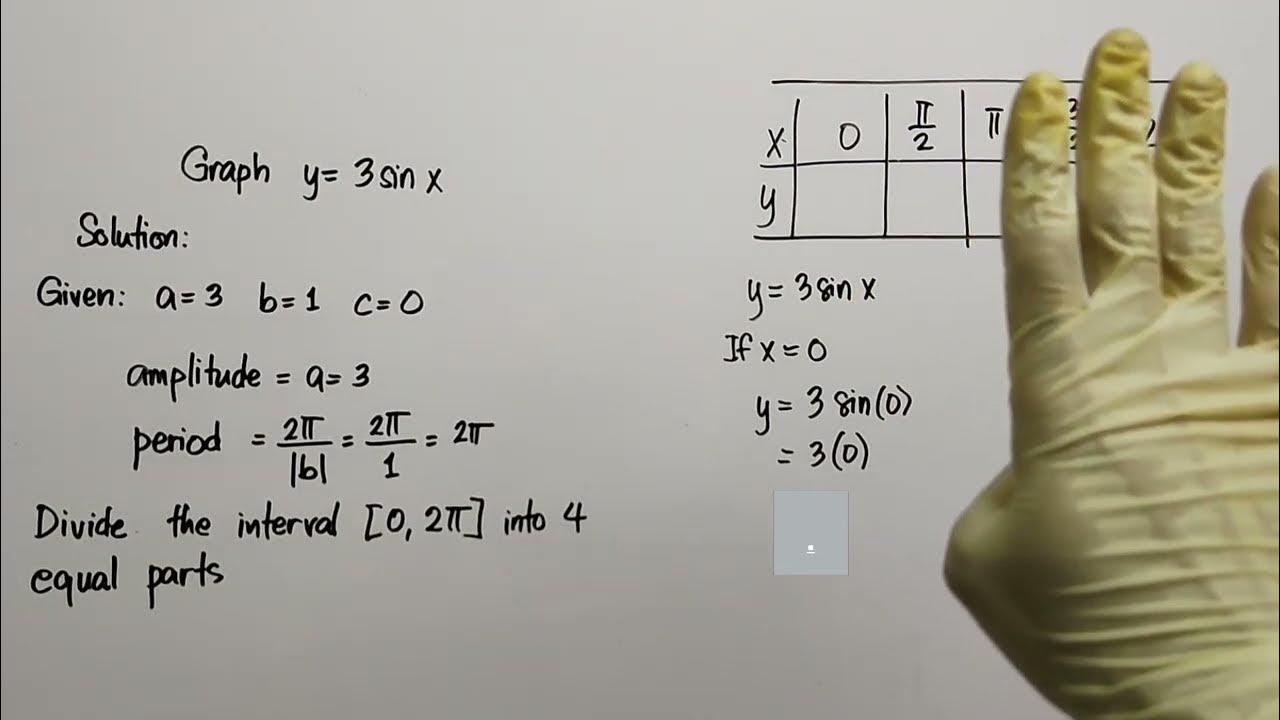 Graph y = 3 sin x
Solution:
Given: a = 3 b = 1 c = 0
amplitude = a = 3
period = 2π/|b| = 2π/1 = 2π
Divide the interval [0, 2π] into 4
equal parts
x 0 π/2 π
y
y = 3 sin x
If x = 0
y = 3 sin(0)
= 3(0)